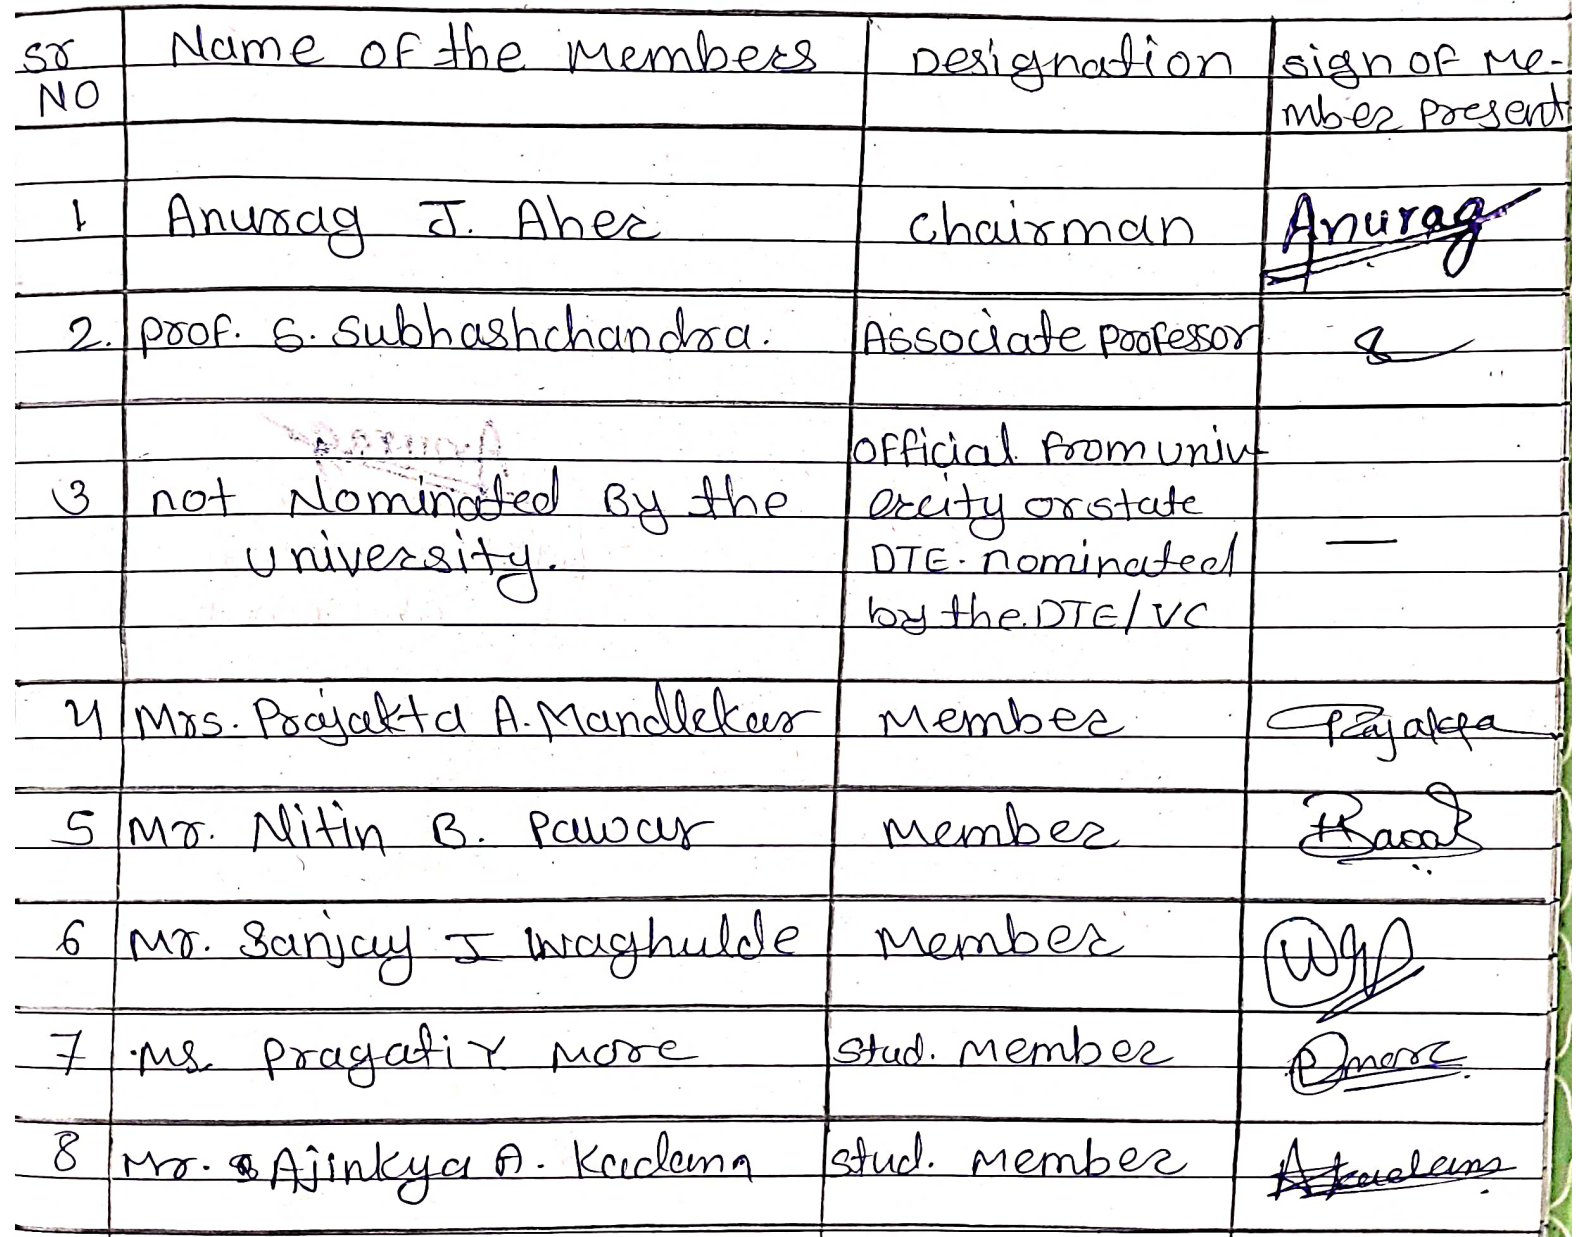 Sr Name of the Members Designation Sign of Me-
NO mber present
1 Anurag J. Aher Chairman Anurag
2. Prof. S. Subhashchandra. Associate Professor
Official from univ
3 not Nominated By the ercity or state —
University. DTE. nominated
by the DTE/VC
4 Mrs. Prajakta A. Mandlekar Member Prajakta
5 Mr. Nitin B. Pawar Member
6 Mr. Sanjay J Waghulde Member
7 Ms. Pragati Y More Stud. Member Pmore
8 Mr. Ajinkya A. Kadam Stud. Member Akadam